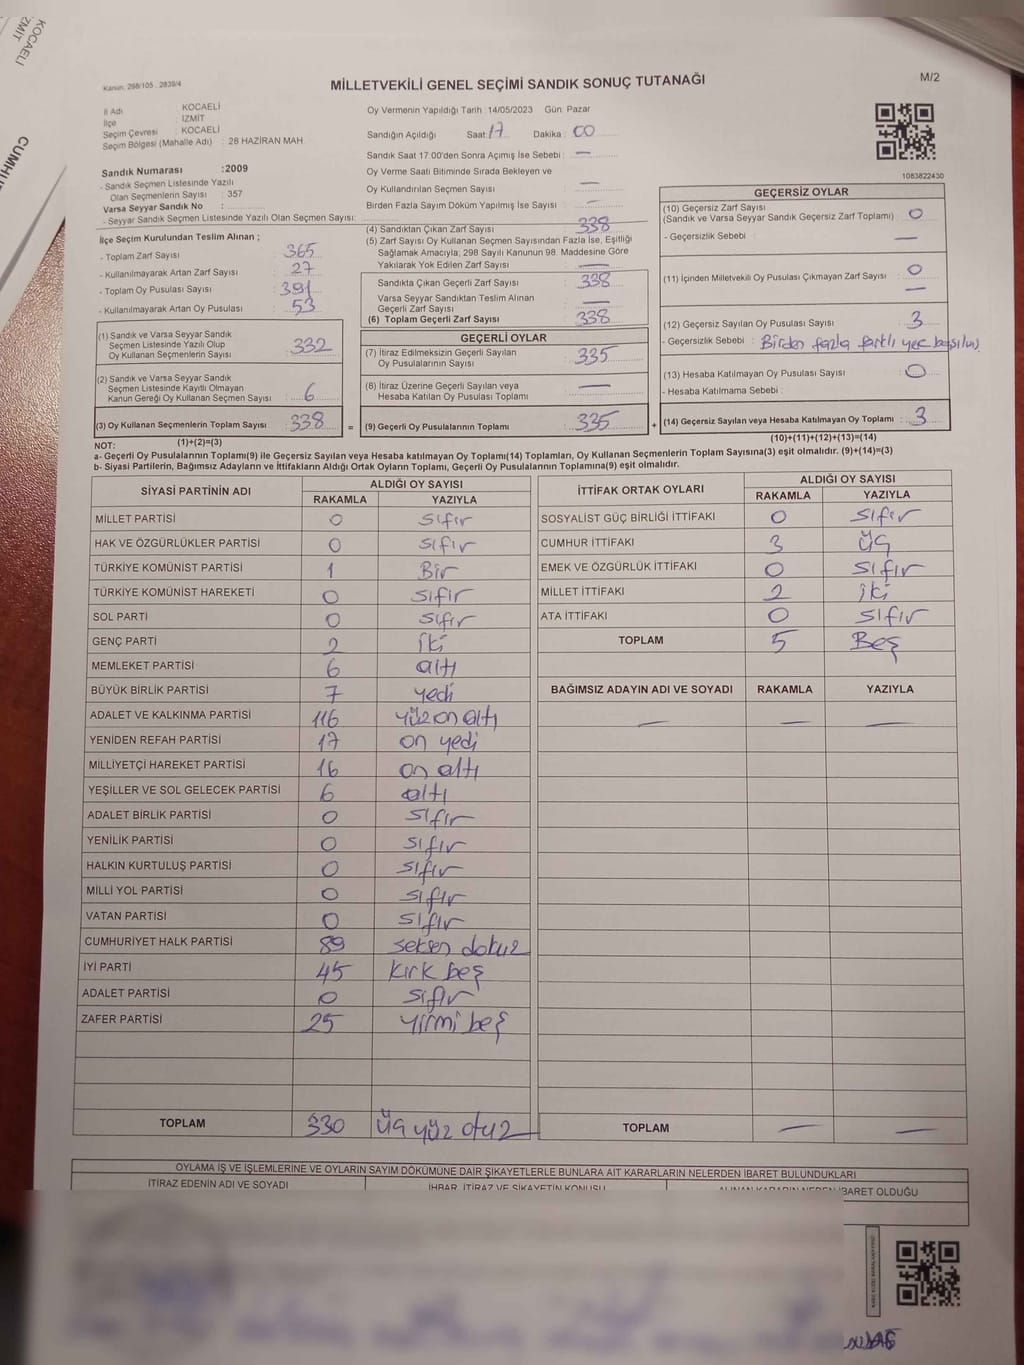 KOCAELİ
İZMİT
Kanun, 298/105 . 2839/4
MİLLETVEKİLİ GENEL SEÇİMİ SANDIK SONUÇ TUTANAĞI
M/2
İl Adı : KOCAELİ
İlçe : İZMİT
Seçim Çevresi : KOCAELİ
Seçim Bölgesi (Mahalle Adı) : 28 HAZİRAN MAH.
Sandık Numarası :2009
- Sandık Seçmen Listesinde Yazılı
Olan Seçmenlerin Sayısı : 357
Varsa Seyyar Sandık No :
- Seyyar Sandık Seçmen Listesinde Yazılı Olan Seçmen Sayısı:
İlçe Seçim Kurulundan Teslim Alınan ;
- Toplam Zarf Sayısı : 365
- Kullanılmayarak Artan Zarf Sayısı : 27
- Toplam Oy Pusulası Sayısı : 391
- Kullanılmayarak Artan Oy Pusulası : 53
(1) Sandık ve Varsa Seyyar Sandık
Seçmen Listesinde Yazılı Olup
Oy Kullanan Seçmenlerin Sayısı : 332
(2) Sandık ve Varsa Seyyar Sandık
Seçmen Listesinde Kayıtlı Olmayan
Kanun Gereği Oy Kullanan Seçmen Sayısı : 6
(3) Oy Kullanan Seçmenlerin Toplam Sayısı : 338
(1)+(2)=(3)
Oy Vermenin Yapıldığı Tarih : 14/05/2023 Gün: Pazar
Sandığın Açıldığı Saat: 17 Dakika : 00
Sandık Saat 17:00'den Sonra Açımış İse Sebebi : —
Oy Verme Saati Bitiminde Sırada Bekleyen ve
Oy Kullandırılan Seçmen Sayısı : —
Birden Fazla Sayım Döküm Yapılmış İse Sayısı : —
(4) Sandıktan Çıkan Zarf Sayısı : 338
(5) Zarf Sayısı Oy Kullanan Seçmen Sayısından Fazla İse, Eşitliği
Sağlamak Amacıyla, 298 Sayılı Kanunun 98. Maddesine Göre
Yakılarak Yok Edilen Zarf Sayısı : —
Sandıkta Çıkan Geçerli Zarf Sayısı : 338
Varsa Seyyar Sandıktan Teslim Alınan
Geçerli Zarf Sayısı : —
(6) Toplam Geçerli Zarf Sayısı : 338
GEÇERLİ OYLAR
(7) İtiraz Edilmeksizin Geçerli Sayılan
Oy Pusulalarının Sayısı : 335
(8) İtiraz Üzerine Geçerli Sayılan veya
Hesaba Katılan Oy Pusulası Toplamı : —
= (9) Geçerli Oy Pusulalarının Toplamı : 335 +
1083822430
GEÇERSİZ OYLAR
(10) Geçersiz Zarf Sayısı
(Sandık ve Varsa Seyyar Sandık Geçersiz Zarf Toplamı) : 0
- Geçersizlik Sebebi : —
(11) İçinden Milletvekili Oy Pusulası Çıkmayan Zarf Sayısı : 0
—
(12) Geçersiz Sayılan Oy Pusulası Sayısı : 3
- Geçersizlik Sebebi : Birden fazla partli yere basılmış
(13) Hesaba Katılmayan Oy Pusulası Sayısı : 0
- Hesaba Katılmama Sebebi :
(14) Geçersiz Sayılan veya Hesaba Katılmayan Oy Toplamı : 3
(10)+(11)+(12)+(13)=(14)
NOT:
a- Geçerli Oy Pusulalarının Toplamı(9) ile Geçersiz Sayılan veya Hesaba katılmayan Oy Toplamı(14) Toplamları, Oy Kullanan Seçmenlerin Toplam Sayısına(3) eşit olmalıdır. (9)+(14)=(3)
b- Siyasi Partilerin, Bağımsız Adayların ve İttifakların Aldığı Ortak Oyların Toplamı, Geçerli Oy Pusulalarının Toplamına(9) eşit olmalıdır.
SİYASİ PARTİNİN ADI ALDIĞI OY SAYISI
RAKAMLA YAZIYLA
MİLLET PARTİSİ 0 sıfır
HAK VE ÖZGÜRLÜKLER PARTİSİ 0 sıfır
TÜRKİYE KOMÜNİST PARTİSİ 1 Bir
TÜRKİYE KOMÜNİST HAREKETİ 0 sıfır
SOL PARTİ 0 sıfır
GENÇ PARTİ 2 iki
MEMLEKET PARTİSİ 6 altı
BÜYÜK BİRLİK PARTİSİ 7 yedi
ADALET VE KALKINMA PARTİSİ 116 yüz on altı
YENİDEN REFAH PARTİSİ 17 on yedi
MİLLİYETÇİ HAREKET PARTİSİ 16 on altı
YEŞİLLER VE SOL GELECEK PARTİSİ 6 altı
ADALET BİRLİK PARTİSİ 0 sıfır
YENİLİK PARTİSİ 0 sıfır
HALKIN KURTULUŞ PARTİSİ 0 sıfır
MİLLİ YOL PARTİSİ 0 sıfır
VATAN PARTİSİ 0 sıfır
CUMHURİYET HALK PARTİSİ 89 seksen dokuz
İYİ PARTİ 45 kırk beş
ADALET PARTİSİ 0 sıfır
ZAFER PARTİSİ 25 yirmi beş
TOPLAM 330 üç yüz otuz
İTTİFAK ORTAK OYLARI ALDIĞI OY SAYISI
RAKAMLA YAZIYLA
SOSYALİST GÜÇ BİRLİĞİ İTTİFAKI 0 sıfır
CUMHUR İTTİFAKI 3 üç
EMEK VE ÖZGÜRLÜK İTTİFAKI 0 sıfır
MİLLET İTTİFAKI 2 iki
ATA İTTİFAKI 0 sıfır
TOPLAM 5 Beş
BAĞIMSIZ ADAYIN ADI VE SOYADI RAKAMLA YAZIYLA
— — —
TOPLAM — —
OYLAMA İŞ VE İŞLEMLERİNE VE OYLARIN SAYIM DÖKÜMÜNE DAİR ŞİKAYETLERLE BUNLARA AİT KARARLARIN NELERDEN İBARET BULUNDUKLARI
İTİRAZ EDENİN ADI VE SOYADI İHBAR, İTİRAZ VE ŞİKAYETİN KONUSU ALINAN KARARIN NEDEN İBARET OLDUĞU